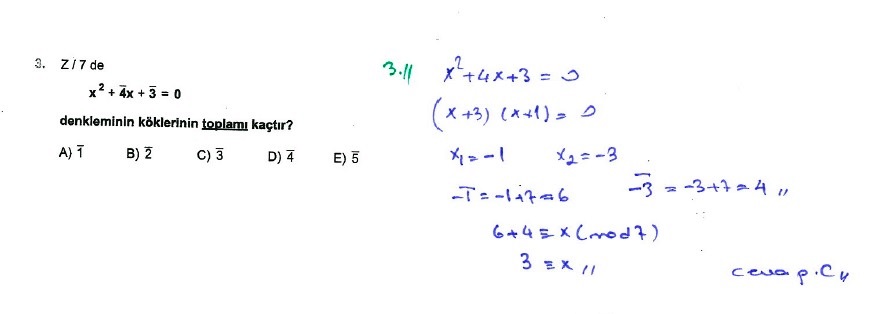 3. Z / 7 de
x² + 4̅x + 3̅ = 0
denkleminin köklerinin toplamı kaçtır?
A) 1̅ B) 2̅ C) 3̅ D) 4̅ E) 5̅
3.//
x²+4x+3 = 0
(x+3) (x+1) = 0
x₁ = -1 x₂ = -3
-1̅ = -1+7 = 6 -3̅ = -3+7 = 4 //
6+4 ≡ x (mod 7)
3 ≡ x //
cevap. C //